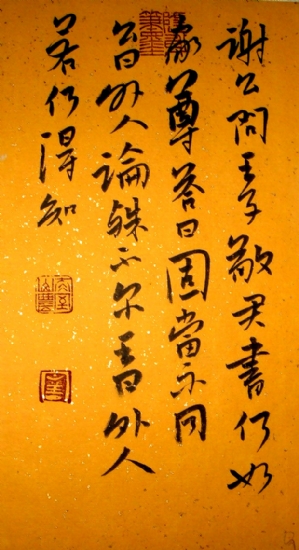 謝公問王子敬君書何如
家尊答曰固當不同
公曰外人論殊不尔王曰外人
若何得知